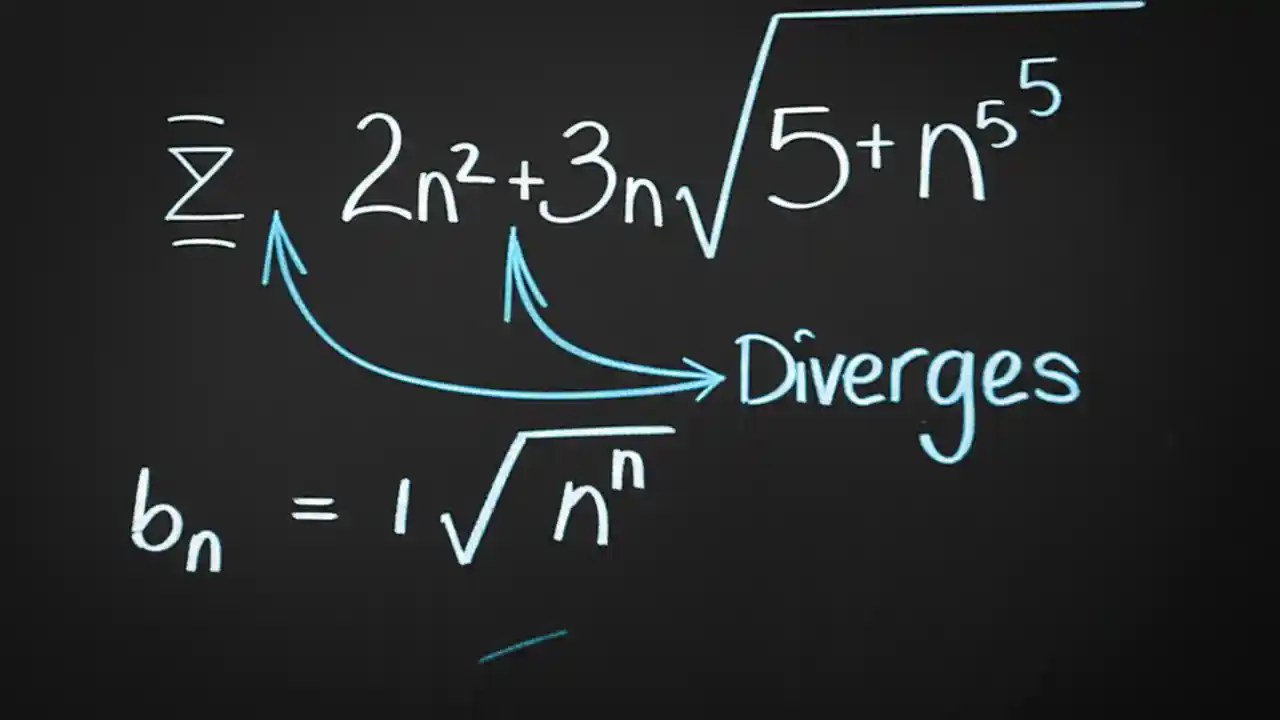 Σ 2n²+3n√5+n⁵⁵
Diverges
bₙ = 1√nⁿ